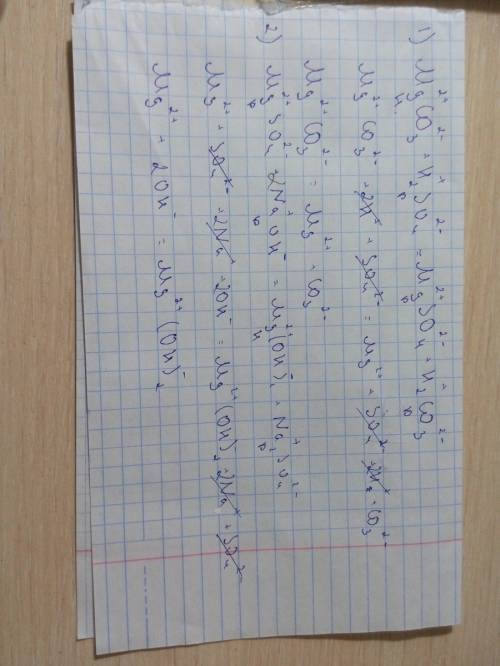 1) Mg²⁺CO₃²⁻ + H₂⁺SO₄²⁻ = Mg²⁺SO₄²⁻ + H₂⁺CO₃²⁻
н р р р
Mg²⁺CO₃²⁻ + 2H⁺ + SO₄²⁻ = Mg²⁺ + SO₄²⁻ + 2H⁺ + CO₃²⁻
Mg²⁺CO₃²⁻ = Mg²⁺ + CO₃²⁻
2) Mg²⁺SO₄²⁻ + 2Na⁺OH⁻ = Mg²⁺(OH)₂⁻ + Na₂⁺SO₄²⁻
р р н р
Mg²⁺ + SO₄²⁻ + 2Na⁺ + 2OH⁻ = Mg²⁺(OH)₂⁻ + 2Na⁺ + SO₄²⁻
Mg²⁺ + 2OH⁻ = Mg²⁺(OH)₂⁻